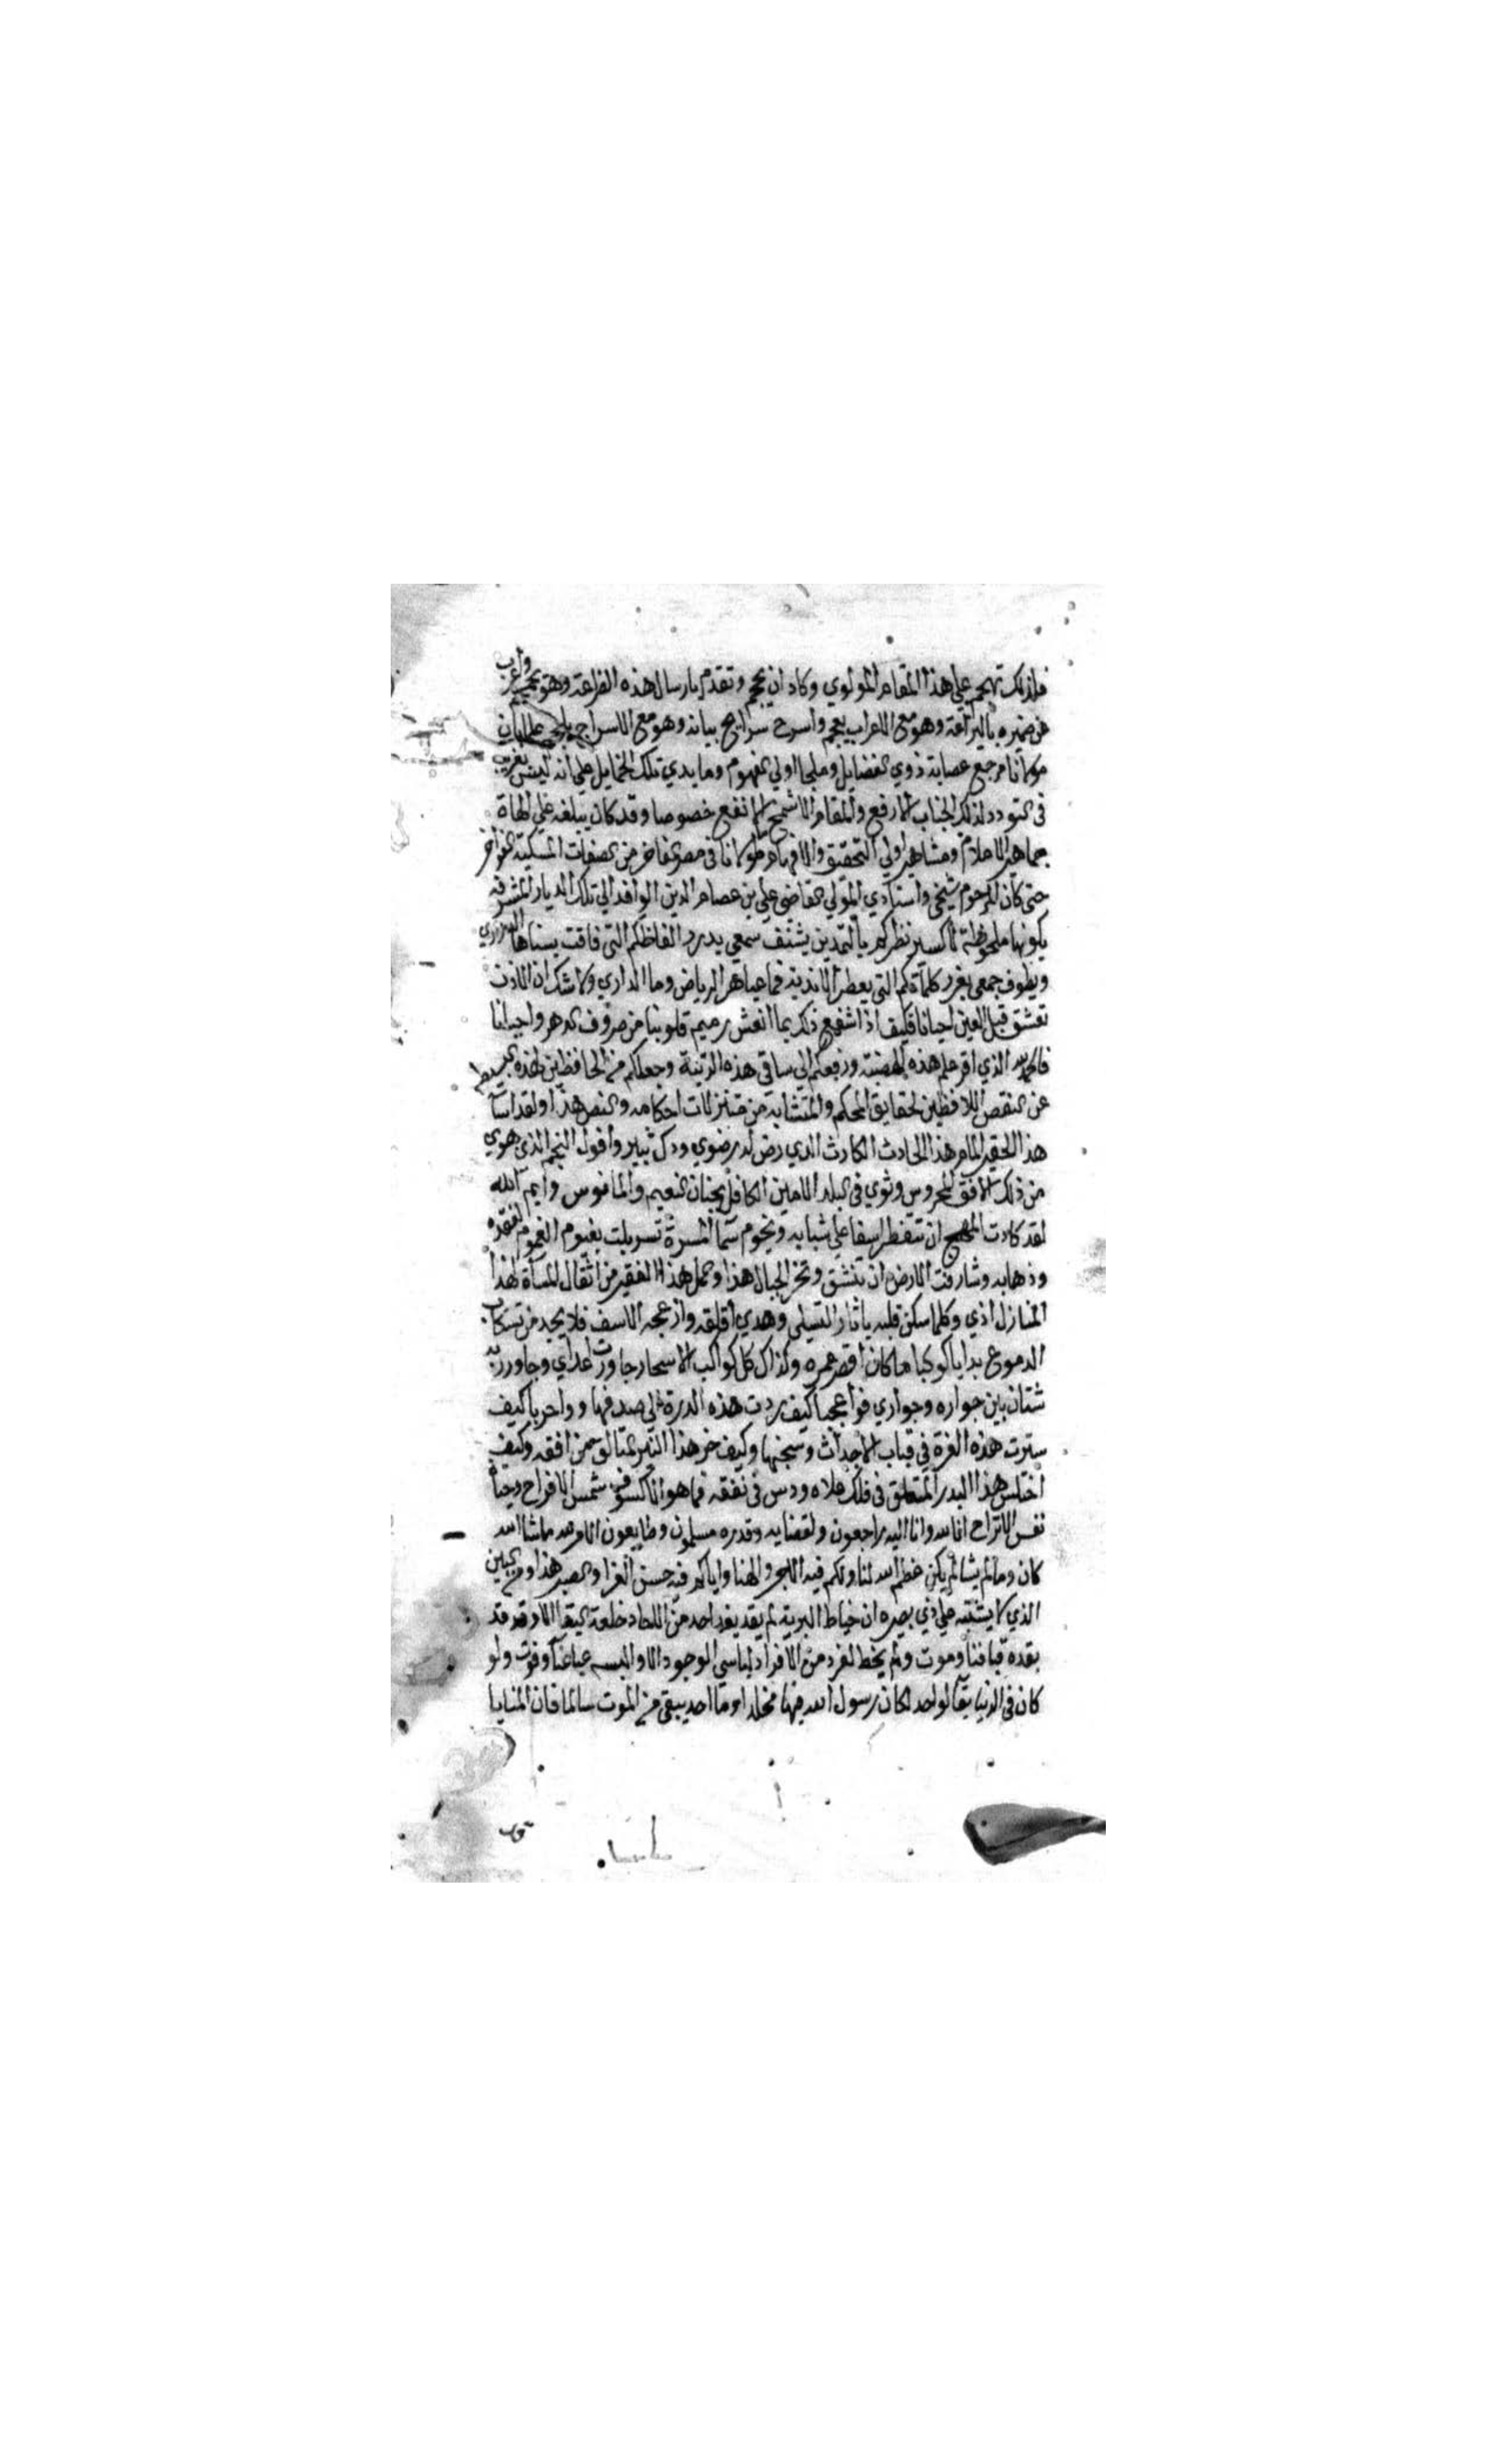 فلذلك تهجم علي هذا المقام المولوي وكاد ان يحجم وتقدم بارسال هذه الضراعة وهو
عن ضميره باليراعة وهو مع الاعراب يعجم واسرح سرايح بيانه وهو مع الاسراج يلجم علما بان
مولانا مرجع عصابة ذوي الفضايل وملجا اولي الفهوم وما يدي تلك الخمايل علي انه ليس بغريب
في التودد لذلك الجناب الارفع والمقام الاشمخ الانفع خصوصا وقد كان يبلغه علي
جماهير الاعلام ومشاهير اولي التحقيق والافهام مولانا في مصر من الصفات المسكية
حتي كان المرحوم شيخي واستادي المولي القاضي علي بن عصام الدين الوافد الي تلك الديار المشرفة
بكونها ملحوظة نظركم يشنف سمعي بدرر الفاظكم التي فاقت بسناها الدراري
ويطوف جمعي بغرر كلماتكم التي يعطر الاندية فما عباهر الرياض وما الداري ولا شك ان الاذن
تعشق قبل العين احيانا فكيف اذا شفع ذلك بما انعش رميم قلوبنا من صروف الدهر واحيانا
فالحمد لله الذي اقر هذه ورفعكم الي ساقي هذه الرتبة وجعلكم من الحافظين لهذه
عن النقص اللافظين لحقايق المحكم والمتشابه من متنزلات احكامه والنص هذا ولقد اساء
هذا الحقير المام هذا الحادث الكارث الذي رض له رضوي ودك ثبير وافول النجم الذي هوي
من ذلك الافق المحروس وثوي في البلد الامين الكافل بجنان النعيم والمانوس وايم الله
لقد كادت المهج ان تتفطر اسفا علي شبابه ونجوم سما المسرة تسربلت بغيوم الغموم لفقده
وذهابه وشارفت الارض ان تنشق وتخر الجبال هذا وحمل هذا الفقير من اثقال المساة لهذا
المنازل اذي وكلما سكن قلبه باثار التسلي وهدي اقلقه وازعجه الاسف فلا يجد من تسكاب
الدموع بدا ياكوكبا ما كان اقصر عمره وكذاك كل كواكب الاسحار جاورت اعداي وجاور ربه
شتان بين جواره وجواري فوا عجبا كيف ردت هذه الدرة الي صدفها و واحربا كيف
سترت هذه الغرة في قباب الاجداث وسجنها وكيف خر هذا النير المتالق من افقه وكيف
اختلس هذا البدر المتعلق في فلك علاه ودس في نفقه فما هو الا كسوف شمس الافراح
نفس الاتراح انا لله وانا اليه راجعون ولقضايه وقدره مسلمون وطايعون الامر لله ما شا الله
كان وما لم يشا لم يكن عظم الله لنا ولكم فيه الاجر والهنا واياكم فيه حسن العزا والصبر هذا ومن البين
الذي لا يشتبه علي ذي بصيره ان خياط البرية لم يقد احد من خلعة البقا الا وقد قد
بقده قبا فنا وموت ولم يخط لفرد من الافراد لباسي الوجود الا والبسه عبا عنا وفوت ولو
كان في الدنيا بقا لواحد لكان رسول الله فيها مخلدا وما احد يبقي من الموت سالما فان المنايا